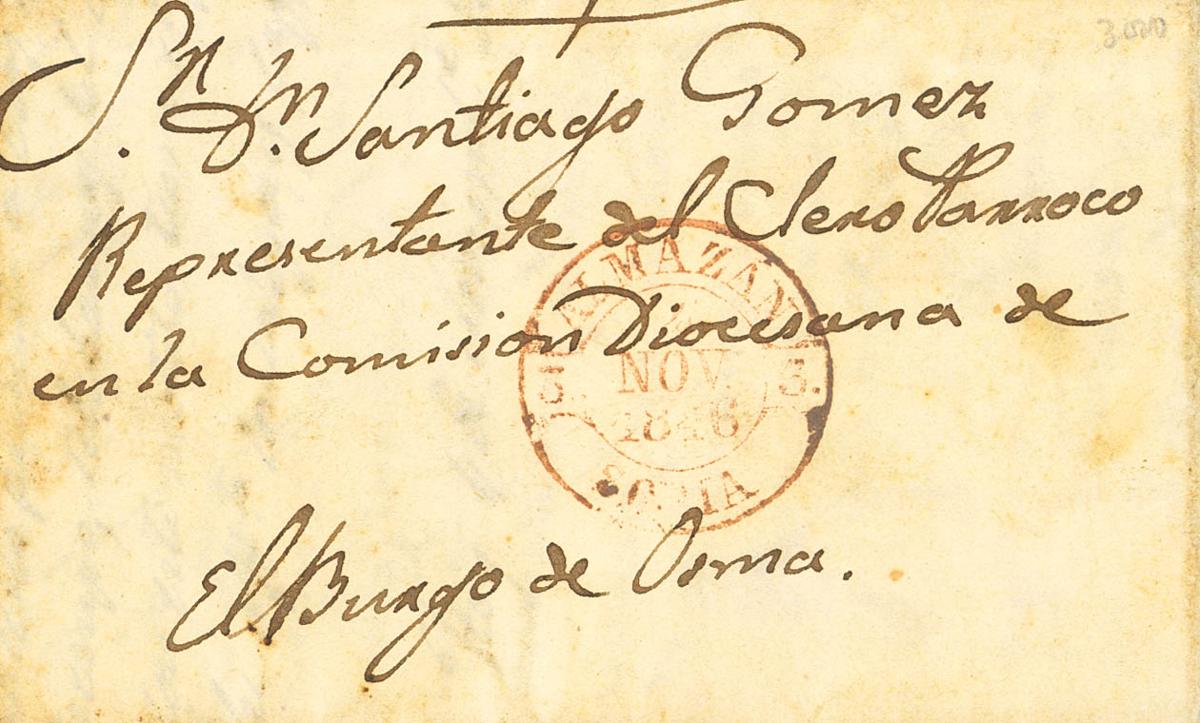 S.ⁿ D.ⁿ Santiago Gomez
Representante del Clero Parroco
en la Comision Diocesana de
El Burgo de Osma.
ALMAZÁN
NOV.
1846
SORIA